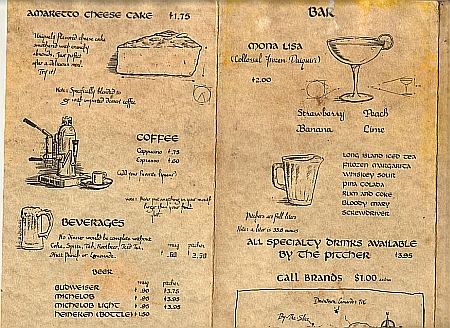 AMARETTO CHEESE CAKE $1.75
Uniquely flavored cheese cake
smothered with crunchy
almonds. Just perfect
after a delicious meal.
Try it!
Note: Specifically blended to
go with imported dessert coffee
COFFEE
Cappucino $.75
Espresso $.60
(add your favorite liqueur)
note: Never put anything in your mouth
larger than your foot.
BEVERAGES
No dinner would be complete without
Coke, Sprite, Tab, Rootbeer, Iced Tea, mug pitcher
Fruit Punch or Lemonade. $.50 2.50
BEER
mug pitcher
BUDWEISER $.90 $3.75
MICHELOB $.90 $3.95
MICHELOB LIGHT $.95 $3.95
HEINEKEN (BOTTLE) $1.50
BAR
MONA LISA
(Collossal Frozen Daiquiri)
$2.00
Strawberry Peach
Banana Lime
LONG ISLAND ICED TEA
FROZEN MARGARITA
WHISKEY SOUR
PINA COLADA
RUM AND COKE
BLOODY MARY
SCREWDRIVER
Pitchers are full liters
Note: a liter is 33.8 ounces
ALL SPECIALTY DRINKS AVAILABLE
BY THE PITCHER $3.95
CALL BRANDS $1.00 extra
By The Slice